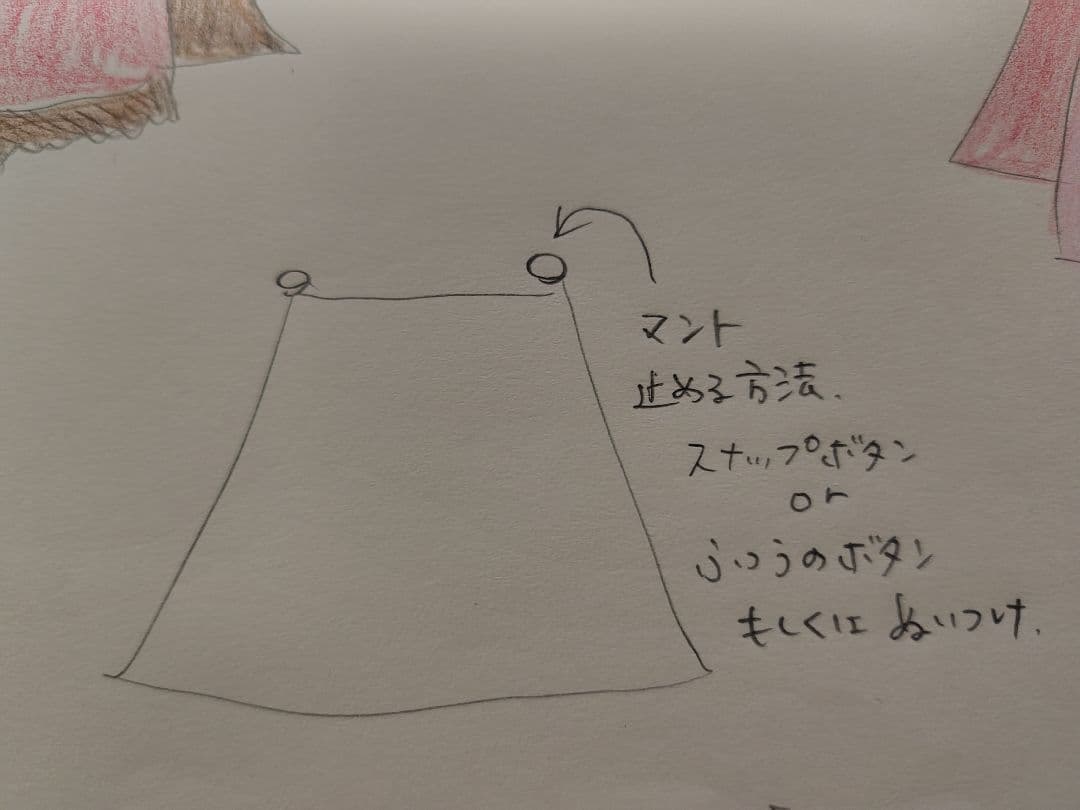 マント
止める方法.
スナップボタン
or
ふつうのボタン
もしくは ぬいつけ.